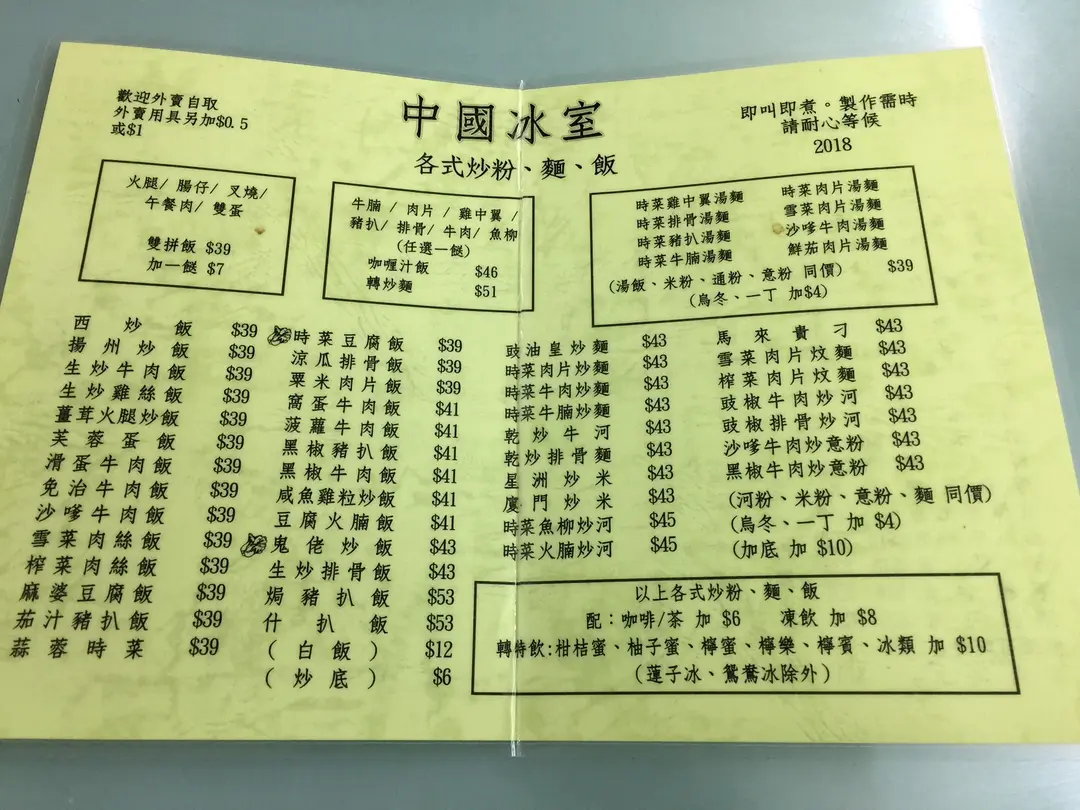 歡迎外賣自取
外賣用具另加$0.5
或$1
中國冰室
各式炒粉、麵、飯
即叫即煮。製作需時
請耐心等候
2018
火腿/ 腸仔/ 叉燒/
午餐肉/ 雙蛋
雙拼飯 $39
加一餸 $7
牛腩 / 肉片 / 雞中翼 /
豬扒/ 排骨/ 牛肉/ 魚柳
(任選一餸)
咖喱汁飯 $46
轉炒麵 $51
時菜雞中翼湯麵
時菜排骨湯麵
時菜豬扒湯麵
時菜牛腩湯麵
時菜肉片湯麵
雪菜肉片湯麵
沙嗲牛肉湯麵
鮮茄肉片湯麵
$39
(湯飯、米粉、通粉、意粉 同價)
(烏冬、一丁 加$4)
西炒飯 $39
揚州炒飯 $39
生炒牛肉飯 $39
生炒雞絲飯 $39
薑茸火腿炒飯 $39
芙蓉蛋飯 $39
滑蛋牛肉飯 $39
免治牛肉飯 $39
沙嗲牛肉飯 $39
雪菜肉絲飯 $39
榨菜肉絲飯 $39
麻婆豆腐飯 $39
茄汁豬扒飯 $39
蒜蓉時菜 $39
時菜豆腐飯 $39
涼瓜排骨飯 $39
粟米肉片飯 $39
窩蛋牛肉飯 $41
菠蘿牛肉飯 $41
黑椒豬扒飯 $41
黑椒牛肉飯 $41
咸魚雞粒炒飯 $41
豆腐火腩飯 $41
鬼佬炒飯 $43
生炒排骨飯 $43
焗豬扒飯 $53
什扒飯 $53
(白飯) $12
(炒底) $6
豉油皇炒麵 $43
時菜肉片炒麵 $43
時菜牛肉炒麵 $43
時菜牛腩炒麵 $43
乾炒牛河 $43
乾炒排骨麵 $43
星洲炒米 $43
廈門炒米 $43
時菜魚柳炒河 $45
時菜火腩炒河 $45
馬來貴刁 $43
雪菜肉片炆麵 $43
榨菜肉片炆麵 $43
豉椒牛肉炒河 $43
豉椒排骨炒河 $43
沙嗲牛肉炒意粉 $43
黑椒牛肉炒意粉 $43
(河粉、米粉、意粉、麵 同價)
(烏冬、一丁 加 $4)
(加底 加 $10)
以上各式炒粉、麵、飯
配：咖啡/茶 加 $6 凍飲 加 $8
轉特飲:柑桔蜜、柚子蜜、檸蜜、檸樂、檸賓、冰類 加 $10
(蓮子冰、鴛鴦冰除外)